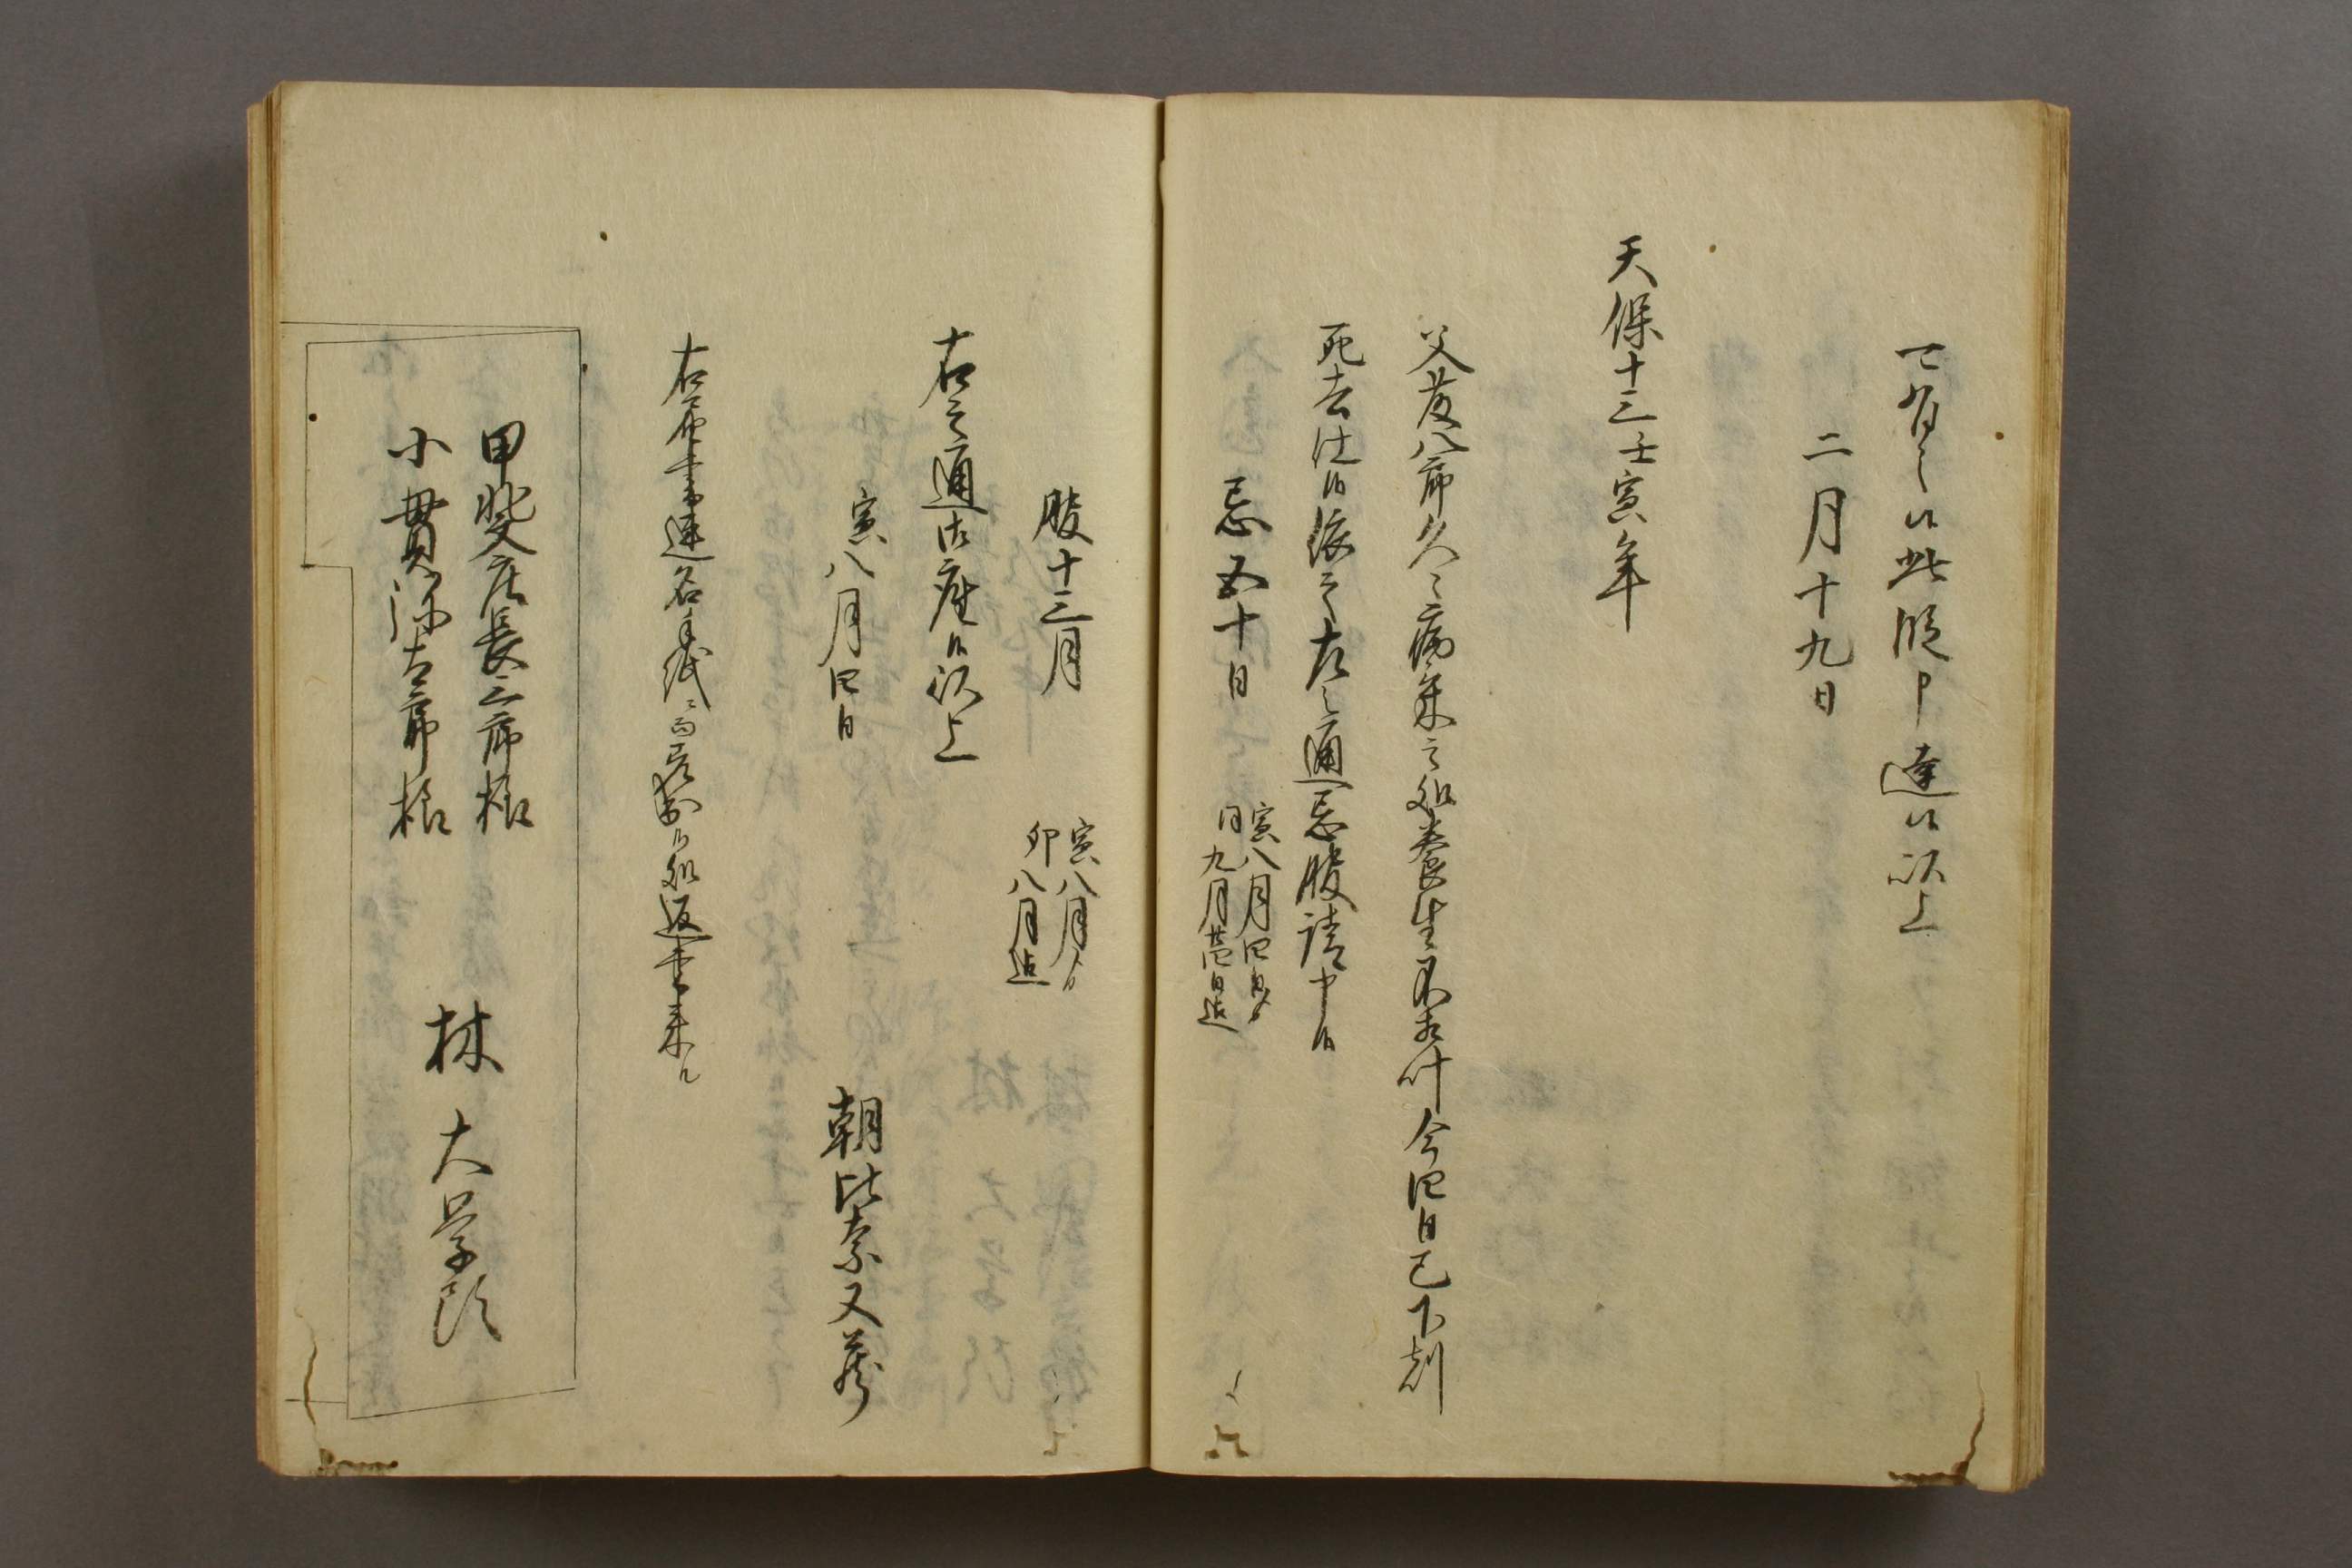 可有之候此段申達候以上
二月十九日
天保十三壬寅年
父藤八郎久々病気之処養生不相叶今四日巳下刻
死去仕候依之左之通忌服請申候
忌五十日
寅八月四日ゟ
同九月廿四日迄
服十三月
寅八月ゟ
卯八月迄
右之通御座候以上
寅八月四日
朝比奈又蔵
右届書連名手紙ニ而差出候処返書来ル
甲斐庄長三郎様
小貫弥太郎様
林大学頭